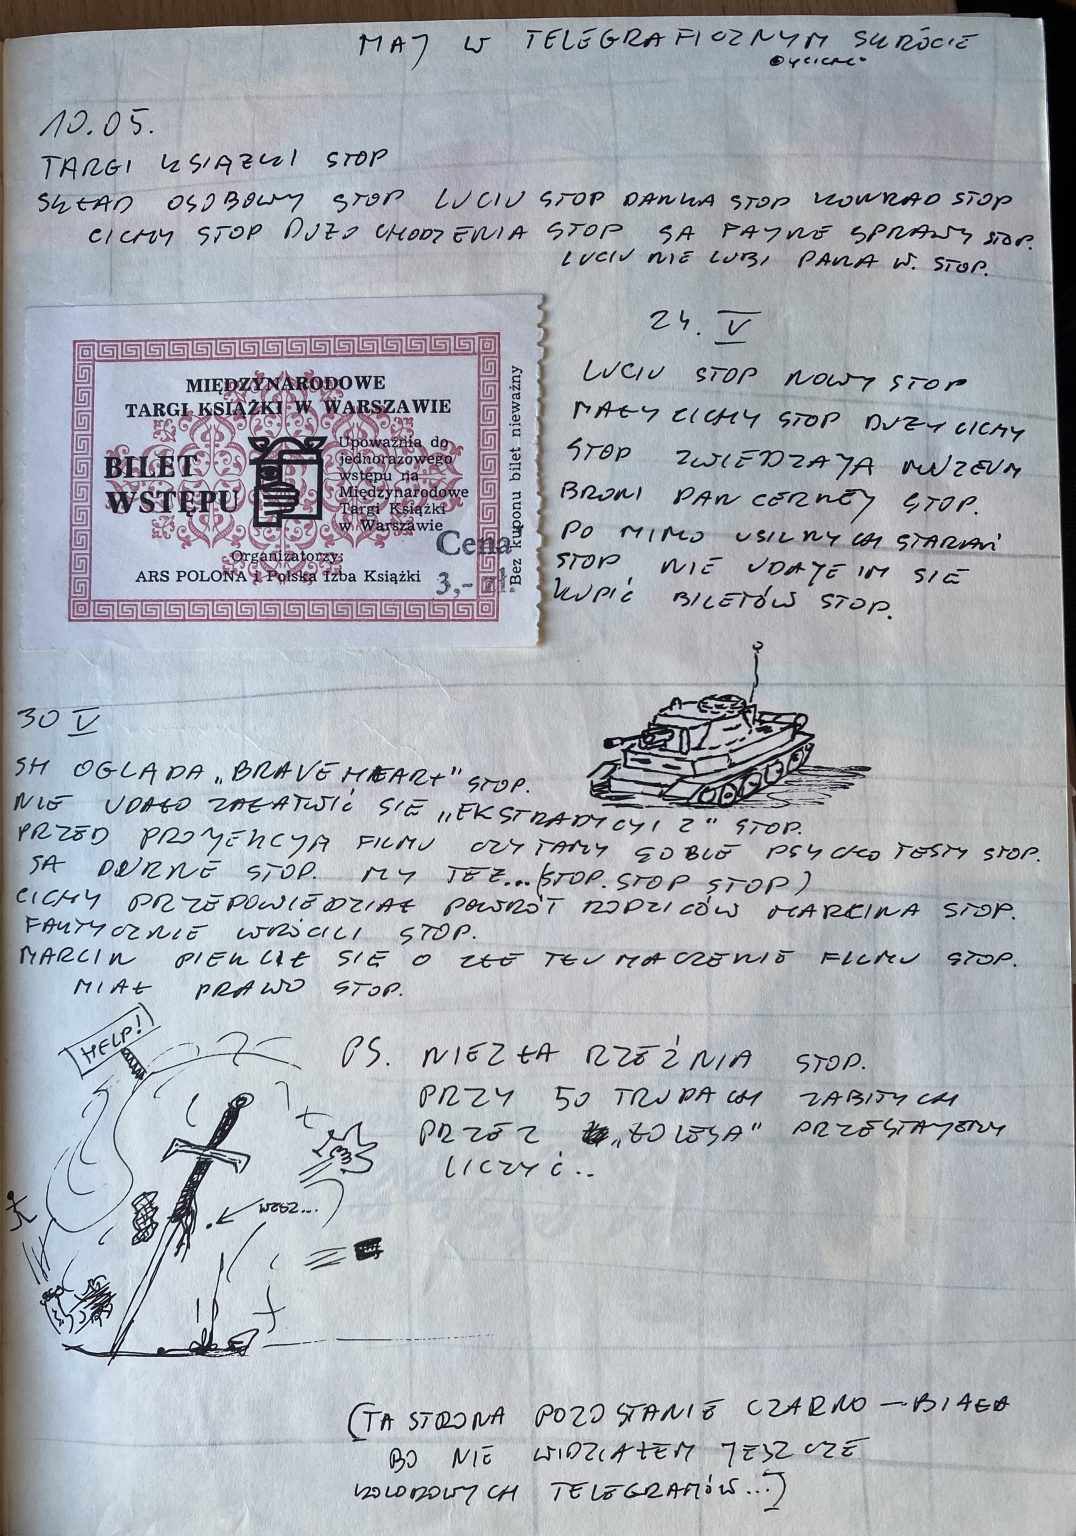 MAJ W TELEGRAFICZNYM SKRÓCIE
10.05.
TARGI KSIĄZKI STOP
SKŁAD OSOBOWY STOP LUCIU STOP DANKA STOP KONRAD STOP
CICHY STOP DUZO CHODZENIA STOP SA FAJNE SPRAWY STOP.
LUCIU NIE LUBI PANA W. STOP.
MIĘDZYNARODOWE
TARGI KSIĄŻKI W WARSZAWIE
BILET
WSTĘPU
Upoważnia do
jednorazowego
wstępu na
Międzynarodowe
Targi Książki
w Warszawie
Cena
3,- zł
Organizatorzy:
ARS POLONA i Polska Izba Książki
Bez kuponu bilet nieważny
24. V
LUCIU STOP NOWY STOP
MAŁY CICHY STOP DUZY CICHY
STOP ZWIEDZAJĄ MUZEUM
BRONI PANCERNEJ STOP.
PO MIMO USILNYCH STARAŃ
STOP NIE UDAJE IM SIE
KUPIĆ BILETÓW STOP.
30 V
SH OGLĄDA „BRAVE HEART" STOP.
NIE UDAŁO ZAŁATWIĆ SIE „EKSTRADYCYI 2" STOP.
PRZED PROJEKCJĄ FILMU CZYTAMY SOBIE PSYCHO TESTY STOP.
SA DURNE STOP. MY TEZ...(STOP. STOP STOP)
CICHY PRZEPOWIEDZIAŁ POWRÓT RODZICÓW MARCINA STOP.
FAKTYCZNIE WRÓCILI STOP.
MARCIN PIEKLIŁ SIE O ZŁE TŁUMACZENIE FILMU STOP.
MIAŁ PRAWO STOP.
HELP!
WESZ...
PS. NIEZŁA RZEŹNIA STOP.
PRZY 50 TRUPACH ZABITYCH
PRZEZ „ŁOLESA" PRZESTAJEMY
LICZYĆ..
(TA STRONA POZOSTANIE CZARNO-BIAŁA
BO NIE WIDZIAŁEM JESZCZE
KOLOROWYCH TELEGRAMÓW...)